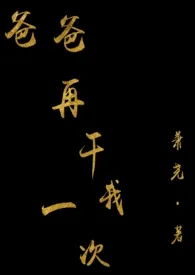 爸爸再干我一次
· 著